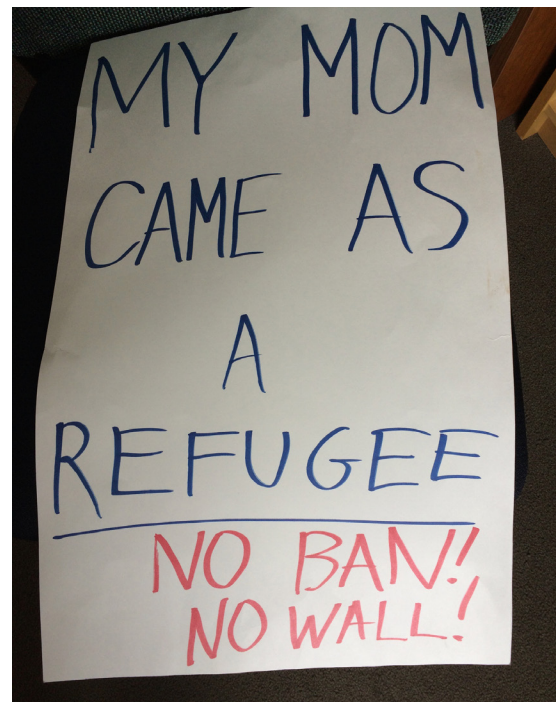 MY MOM
CAME AS
A
REFUGEE
NO BAN!
NO WALL!